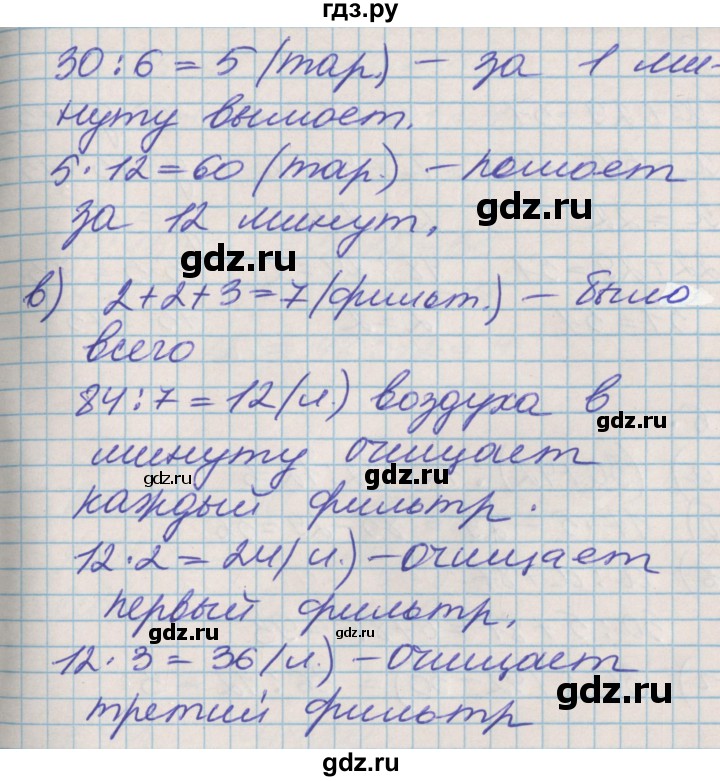 гдз.ру
30:6=5 (тар.) – за 1 ми-
нуту вымоет.
5·12=60 (тар.) – помоет
за 12 минут.
gdz.ru
gdz.ru
в) 2+2+3=7 (фильт.) – было
всего
84:7=12 (л.) воздуха в
gdz.ru
минуту очищает
gdz.ru
gdz.ru
каждый фильтр.
12·2=24 (л.) – очищает
первый фильтр.
gdz.ru
gdz.ru
12·3=36 (л.) – очищает
gdz.ru
третий фильтр
gdz.ru